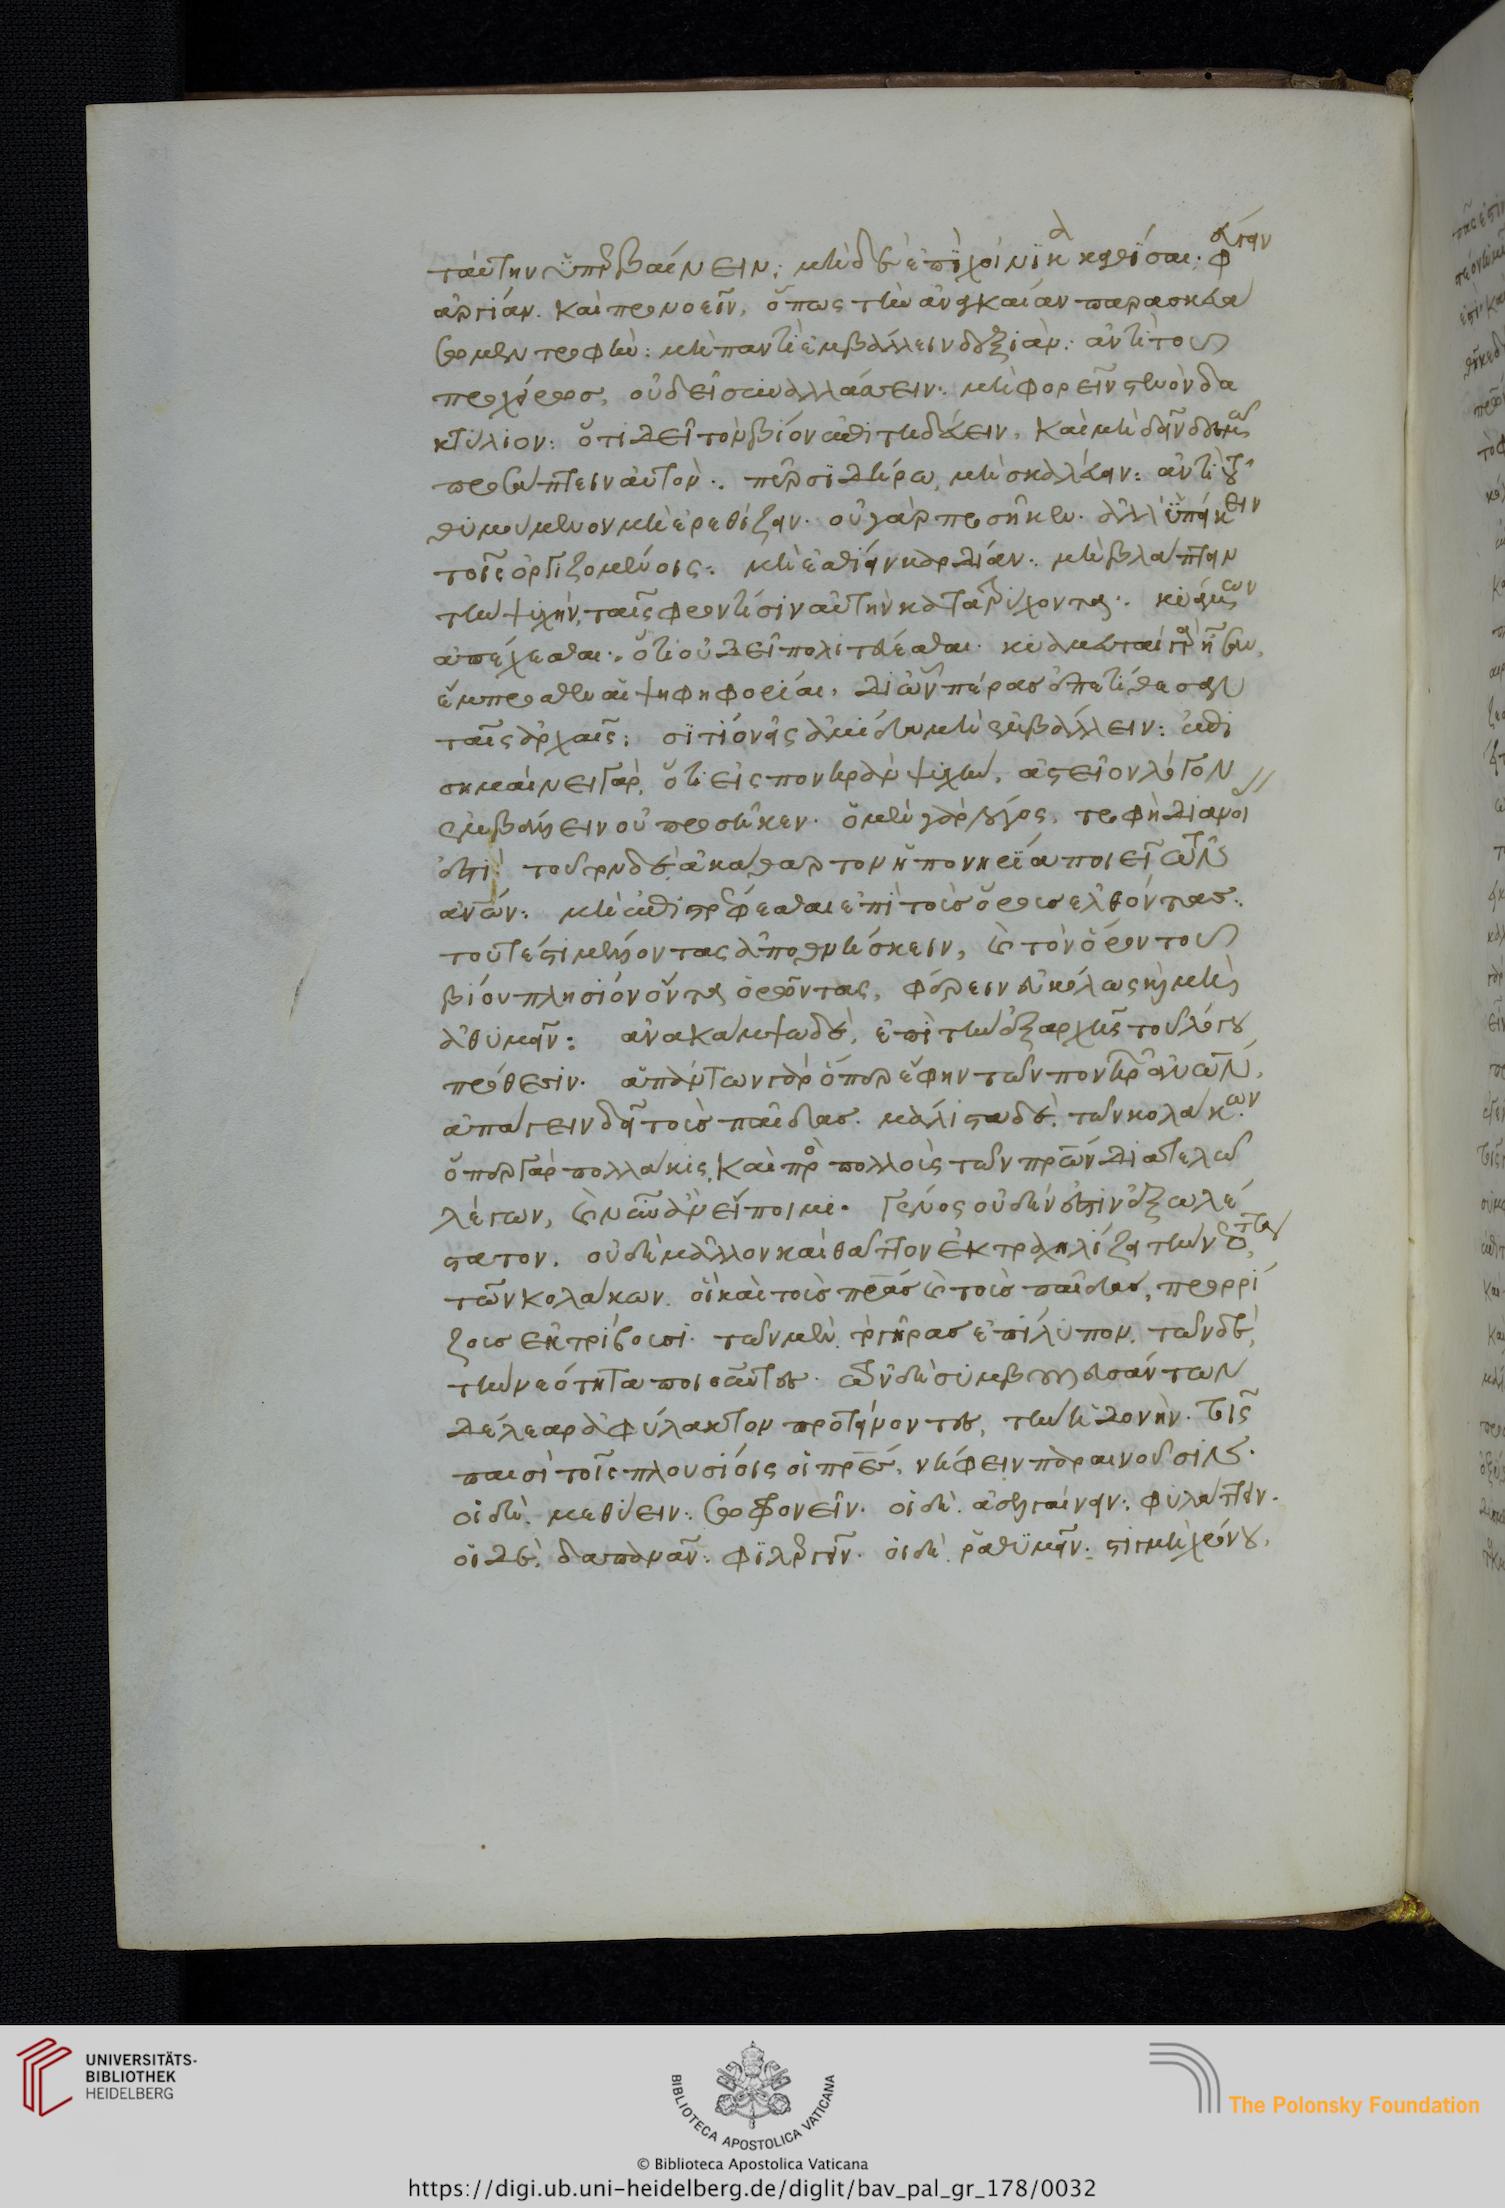 ταύτην ὑπερβαίνειν: μὴ δὲ ἐπὶ χοίνικα καθίσαι· φεύγειν
ἀργίαν. καὶ προνοεῖν, ὅπως τὴν ἀναγκαίαν παρασκευά
σομεν τροφήν: μὴ παντὶ ἐμβάλλειν δεξιάν: ἀντὶ τοῦ
προχείρως, οὐ δεῖ συναλλάσσειν: μὴ φορεῖν στενὸν δα
κτύλιον: ὅτι δεῖ τὸν βίον ἐπιτηδεύειν, καὶ μὴ δεῖν δεσμῷ
προσάπτειν αὐτόν: πῦρ σιδήρω μὴ σκαλεύειν: ἀντὶ τοῦ
θυμούμενον μὴ ἐρεθίζειν. οὐ γὰρ προσῆκεν. ἀλλ' ὑπείκειν
τοῖς ὀργιζομένοις: μὴ ἐσθίειν καρδίαν: μὴ βλάπτειν
τὴν ψυχὴν, ταῖς φροντίσιν αὐτὴν κατατρύχοντα: κυάμων
ἀπέχεσθαι: ὅτι οὐ δεῖ πολιτεύεσθαι. κυαμευταὶ γὰρ ἦσαν
ἔμπροσθεν αἱ ψηφηφορίαι, δι' ὧν πέρας ἐπετίθεσαν
ταῖς ἀρχαῖς: σιτίον εἰς ἀμίδα μὴ ἐμβάλλειν: ἐπι
σημαίνει γὰρ, ὅτι εἰς πονηρὰν ψυχὴν, ἀστεῖον λόγον
ἐμβάλλειν οὐ προσῆκεν. ὁ μὲν γὰρ λόγος, τροφὴ διανοί
ἐστί: τοῦτον δὲ, ἀκάθαρτον ἡ πονηρία ποιεῖ τῶν
ἀνων: μὴ ἐπιστρέφεσθαι ἐπὶ τοὺς ὅρους ἐλθόντας:
τουτέστι μέλλοντας ἀποθνήσκειν, καὶ τὸν ὅρον τοῦ
βίου πλησίον ὄντα ὁρῶντας, φέρειν εὐκόλως καὶ μὴ
ἀθυμεῖν: ἀνακάμψω δὲ, ἐπὶ τὴν ἐξ ἀρχῆς τοῦ λόγου
πρόθεσιν. ἁπάντων γὰρ ὅπερ ἔφην τῶν πονηρῶν ἀνων,
ἀπάγειν δεῖ τοὺς παῖδας. μάλιστα δὲ, τῶν κολάκων.
ὅπερ γὰρ πολλάκις, καὶ πρὸς πολλοὺς τῶν πρων διατελῶ
λέγων, καὶ νῦν ἂν εἴποιμι. γένος οὐδέν ἐστιν ἐξωλέ
στατον. οὐδὲ μᾶλλον καὶ θᾶττον ἐκτραχηλίζει τὴν νεότητα,
τῶν κολάκων. οἳ καὶ τοὺς πρας καὶ τοὺς παῖδας, προρρί
ζους ἐκτρίβουσι. τῶν μὲν, τὸ γῆρας ἐπίλυπον, τῶν δὲ,
τὴν νεότητα ποιοῦντες. τῶν δὲ συμβουλευσάντων
δέλεαρ ἀφύλακτον προτείνοντες, τὴν ἡδονήν. τοῖς
παισὶ τοῖς πλουσίοις οἱ πρες, νήφειν παραινοῦσιν.
οἱ δὲ, μεθύειν: σωφρονεῖν. οἱ δὲ, ἀσελγαίνειν: φυλάττειν.
οἱ δὲ, δαπανᾶν: φιλεργεῖν. οἱ δὲ, ῥαθυμεῖν. στιγμὴ χρόνου,
UNIVERSITÄTS-
BIBLIOTHEK
HEIDELBERG
BIBLIOTECA APOSTOLICA VATICANA
© Biblioteca Apostolica Vaticana
The Polonsky Foundation
https://digi.ub.uni-heidelberg.de/diglit/bav_pal_gr_178/0032